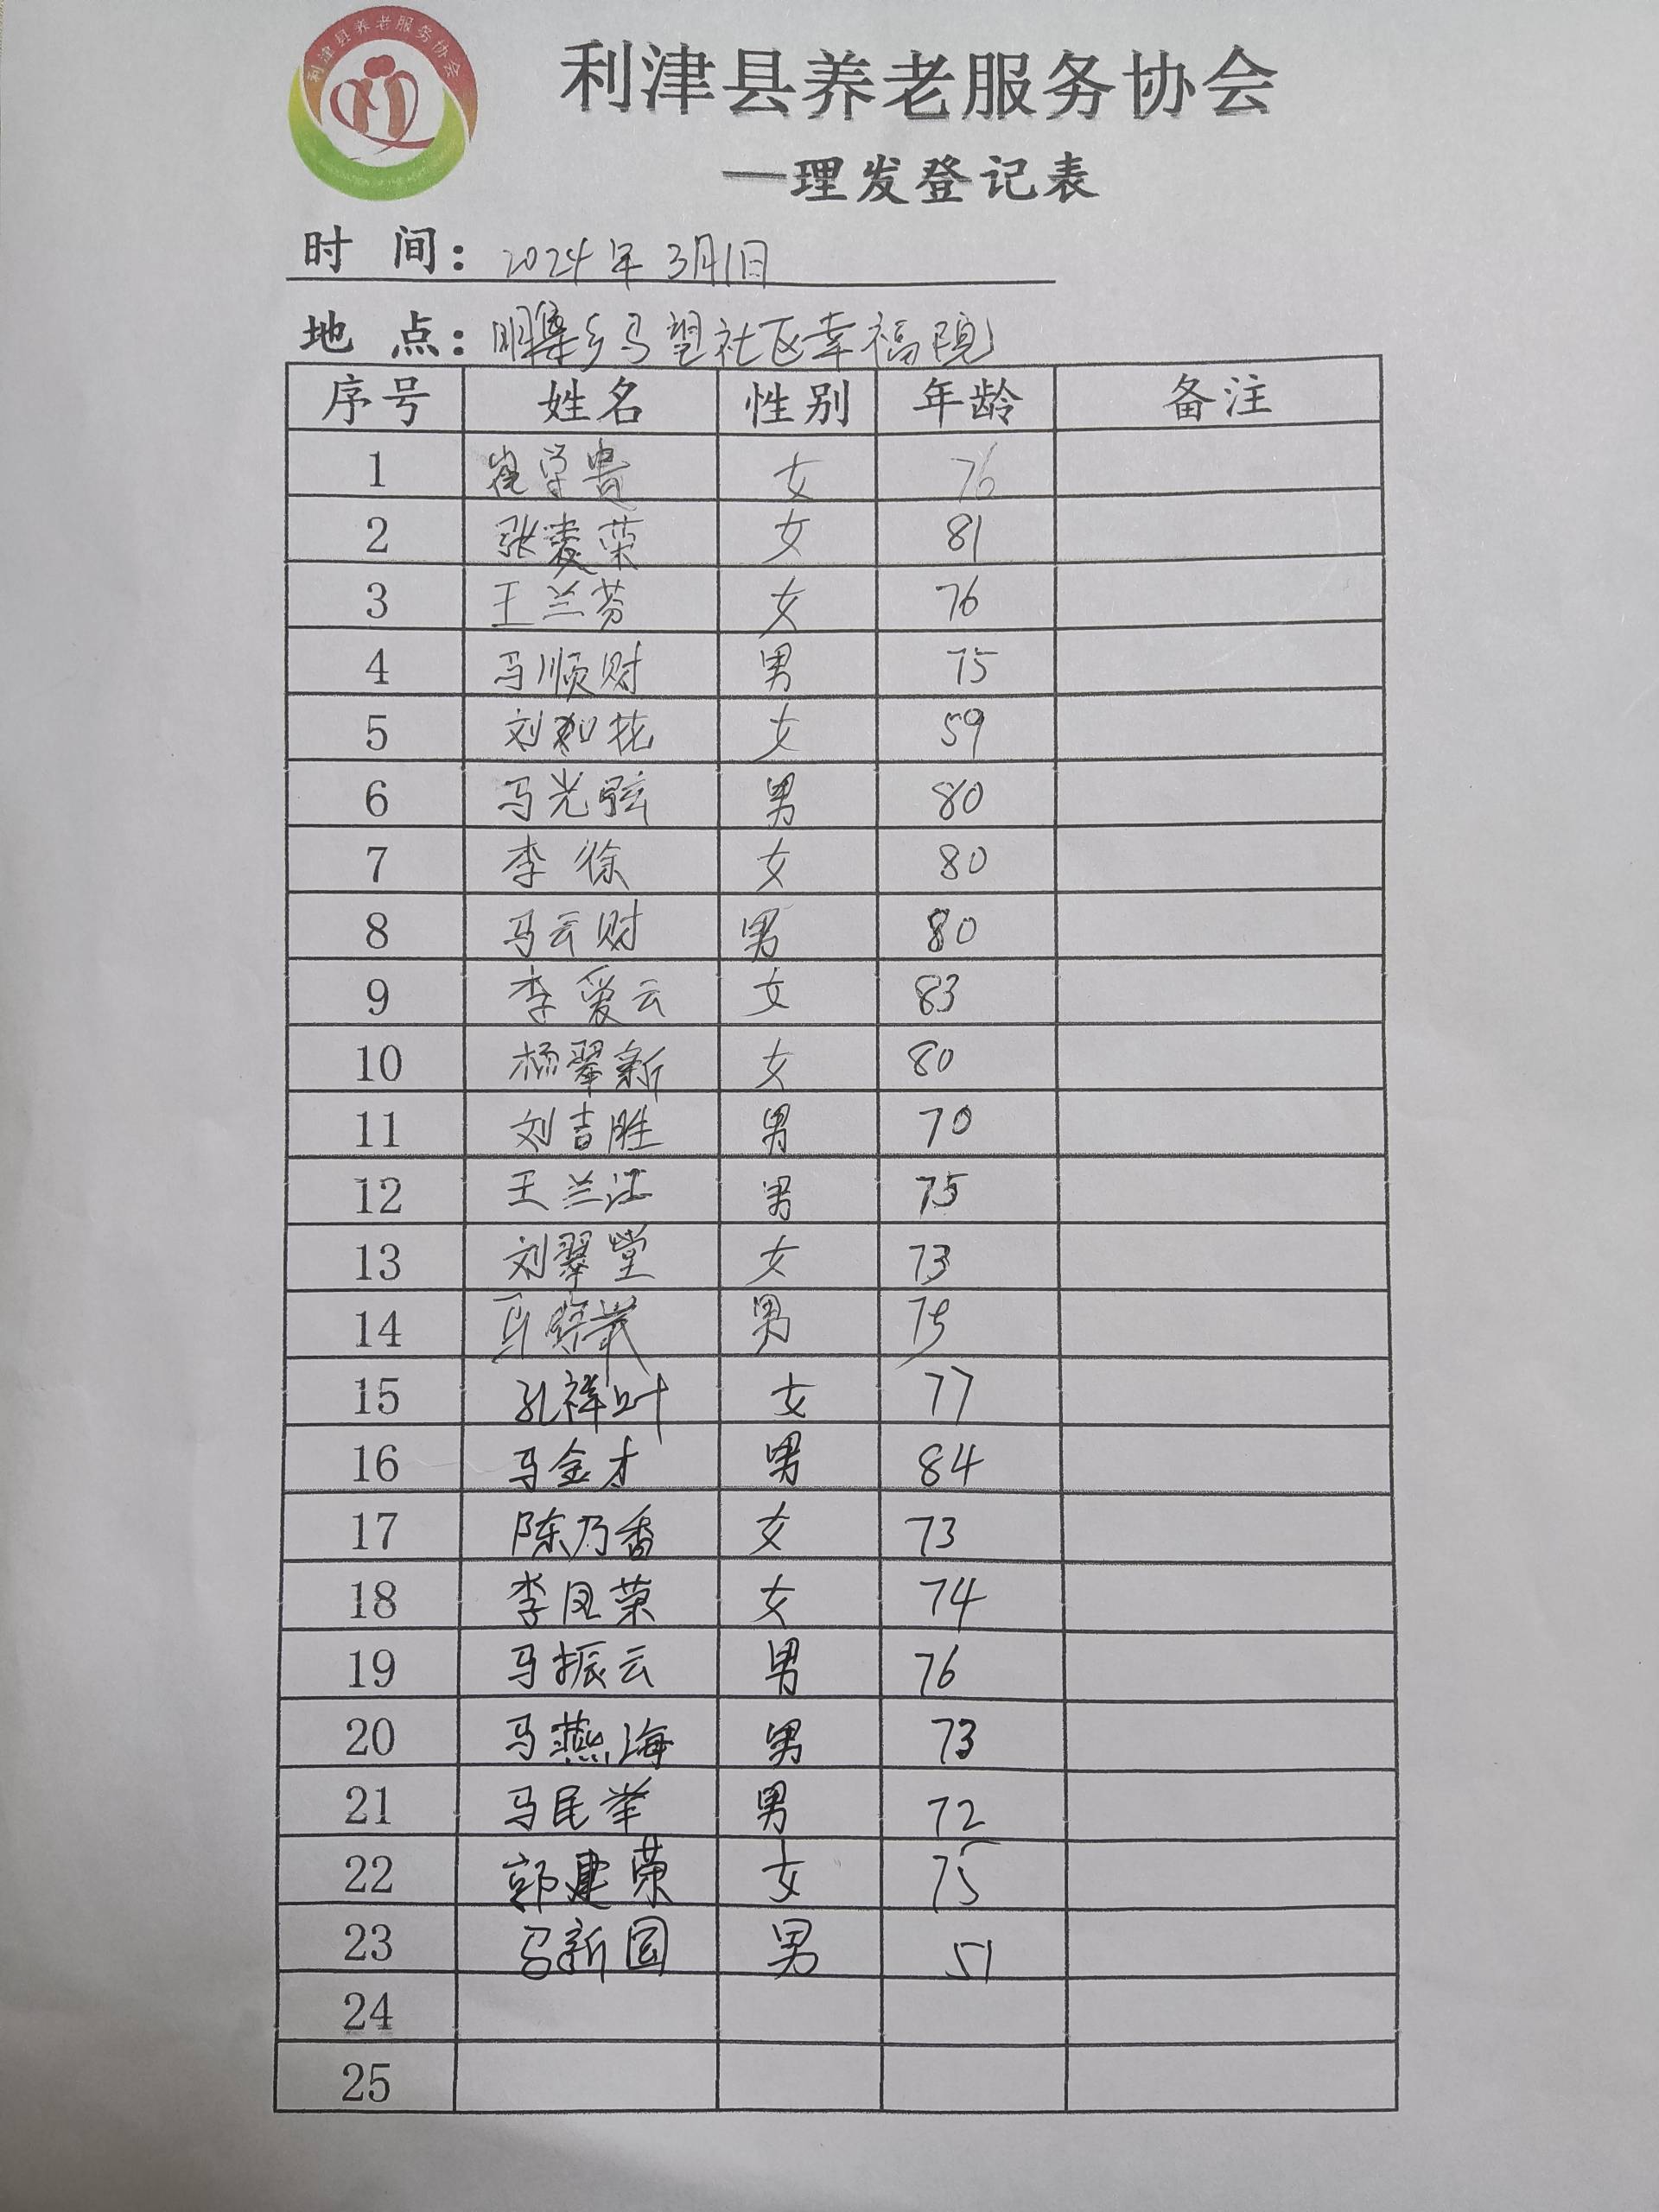 利津县养老服务协会
利津县养老服务协会
一理发登记表
时 间：2024年3月1日
地 点：明集乡马望社区幸福院
序号 姓名 性别 年龄 备注
1 崔学贵 女 76
2 张 荣 女 81
3 王兰芬 女 76
4 马顺财 男 75
5 刘 花 女 59
6 马光弦 男 80
7 李徐 女 80
8 马云财 男 80
9 李爱云 女 83
10 杨翠新 女 80
11 刘吉胜 男 70
12 王兰江 男 75
13 刘翠堂 女 73
14 男 75
15 孔祥叶 女 77
16 马金才 男 84
17 陈乃香 女 73
18 李凤荣 女 74
19 马振云 男 76
20 马燕海 男 73
21 马民举 男 72
22 郭建荣 女 75
23 马新国 男 51
24
25